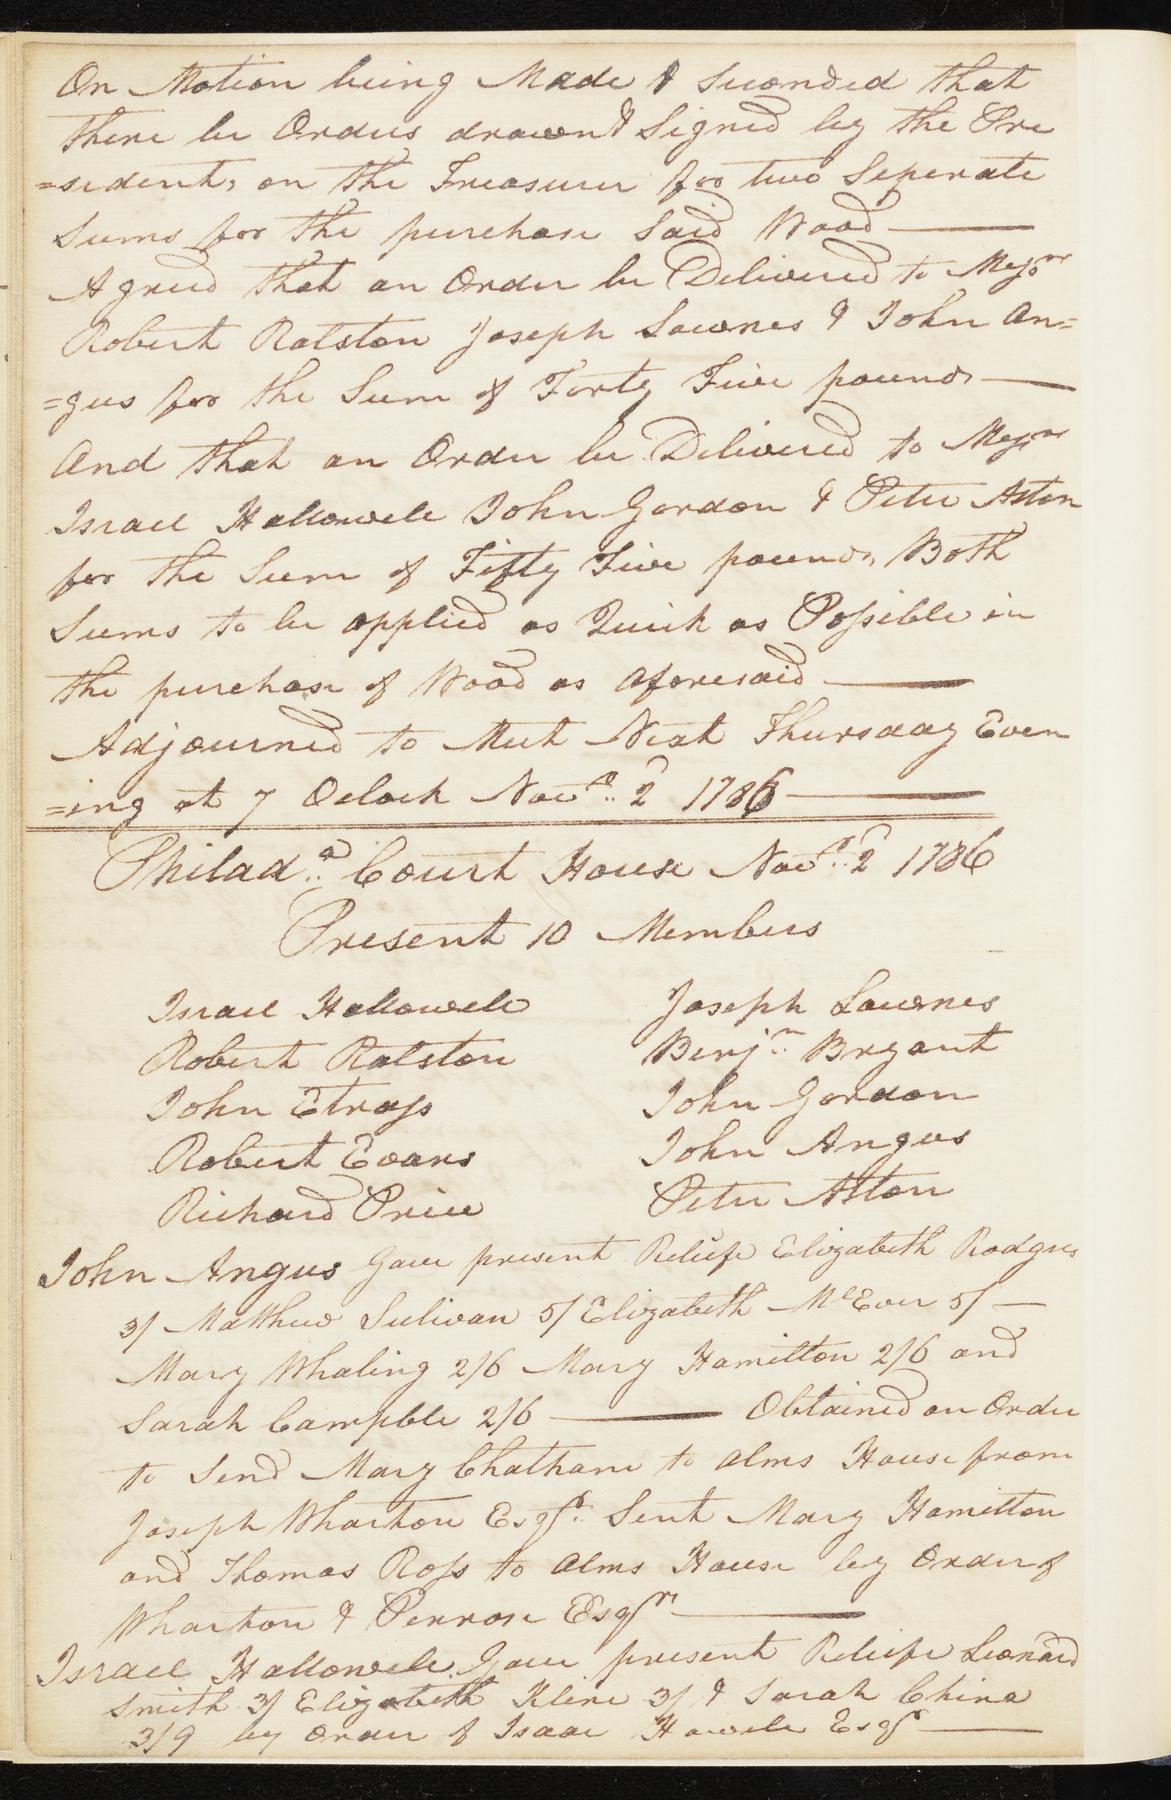 On Motion being Made & Seconded that
there be Orders drawn & Signed by the Pre
=sident, on the Treasurer for two Seperate
Sums for the purchase Said Wood
Agreed that an Order be Delivered to Messrs
Robert Ralston Joseph Lownes & John An=
=gus for the Sum of Forty Five pounds
And that an Order be Delivered to Messrs
Israel Hallowell John Gordon & Peter Aston
for the Sum of Fifty Five pounds, Both
Sums to be applied as Quick as Possible in
the purchase of Wood as aforesaid
Adjourned to Meet Next Thursday Even
=ing at 7 Oclock Novr. 2d 1786
Philada. Court House Novr. 2d 1786
Present 10 Members
Israel Hallowell Joseph Lownes
Robert Ralston Benjn. Bryant
John Etrass John Gordon
Robert Evans John Angus
Richard Price Peter Aston
John Angus Gave present Reliefe Elizabeth Rodgers
3/ Matthew Sulivan 5/ Elizabeth McEver 5/
Mary Whaling 2/6 Mary Hamilton 2/6 and
Sarah Campble 2/6 Obtained an Order
to Send Mary Chatham to Alms House from
Joseph Wharton Esqr. Sent Mary Hamilton
and Thomas Ross to Alms House by Order of
Wharton & Penrose Esqrs
Israel Hallowell Gave present Reliefe Leonard
Smith 3/ Elizabeth Kline 3/ & Sarah China
3/9 by Order of Isaac Howell Esqr